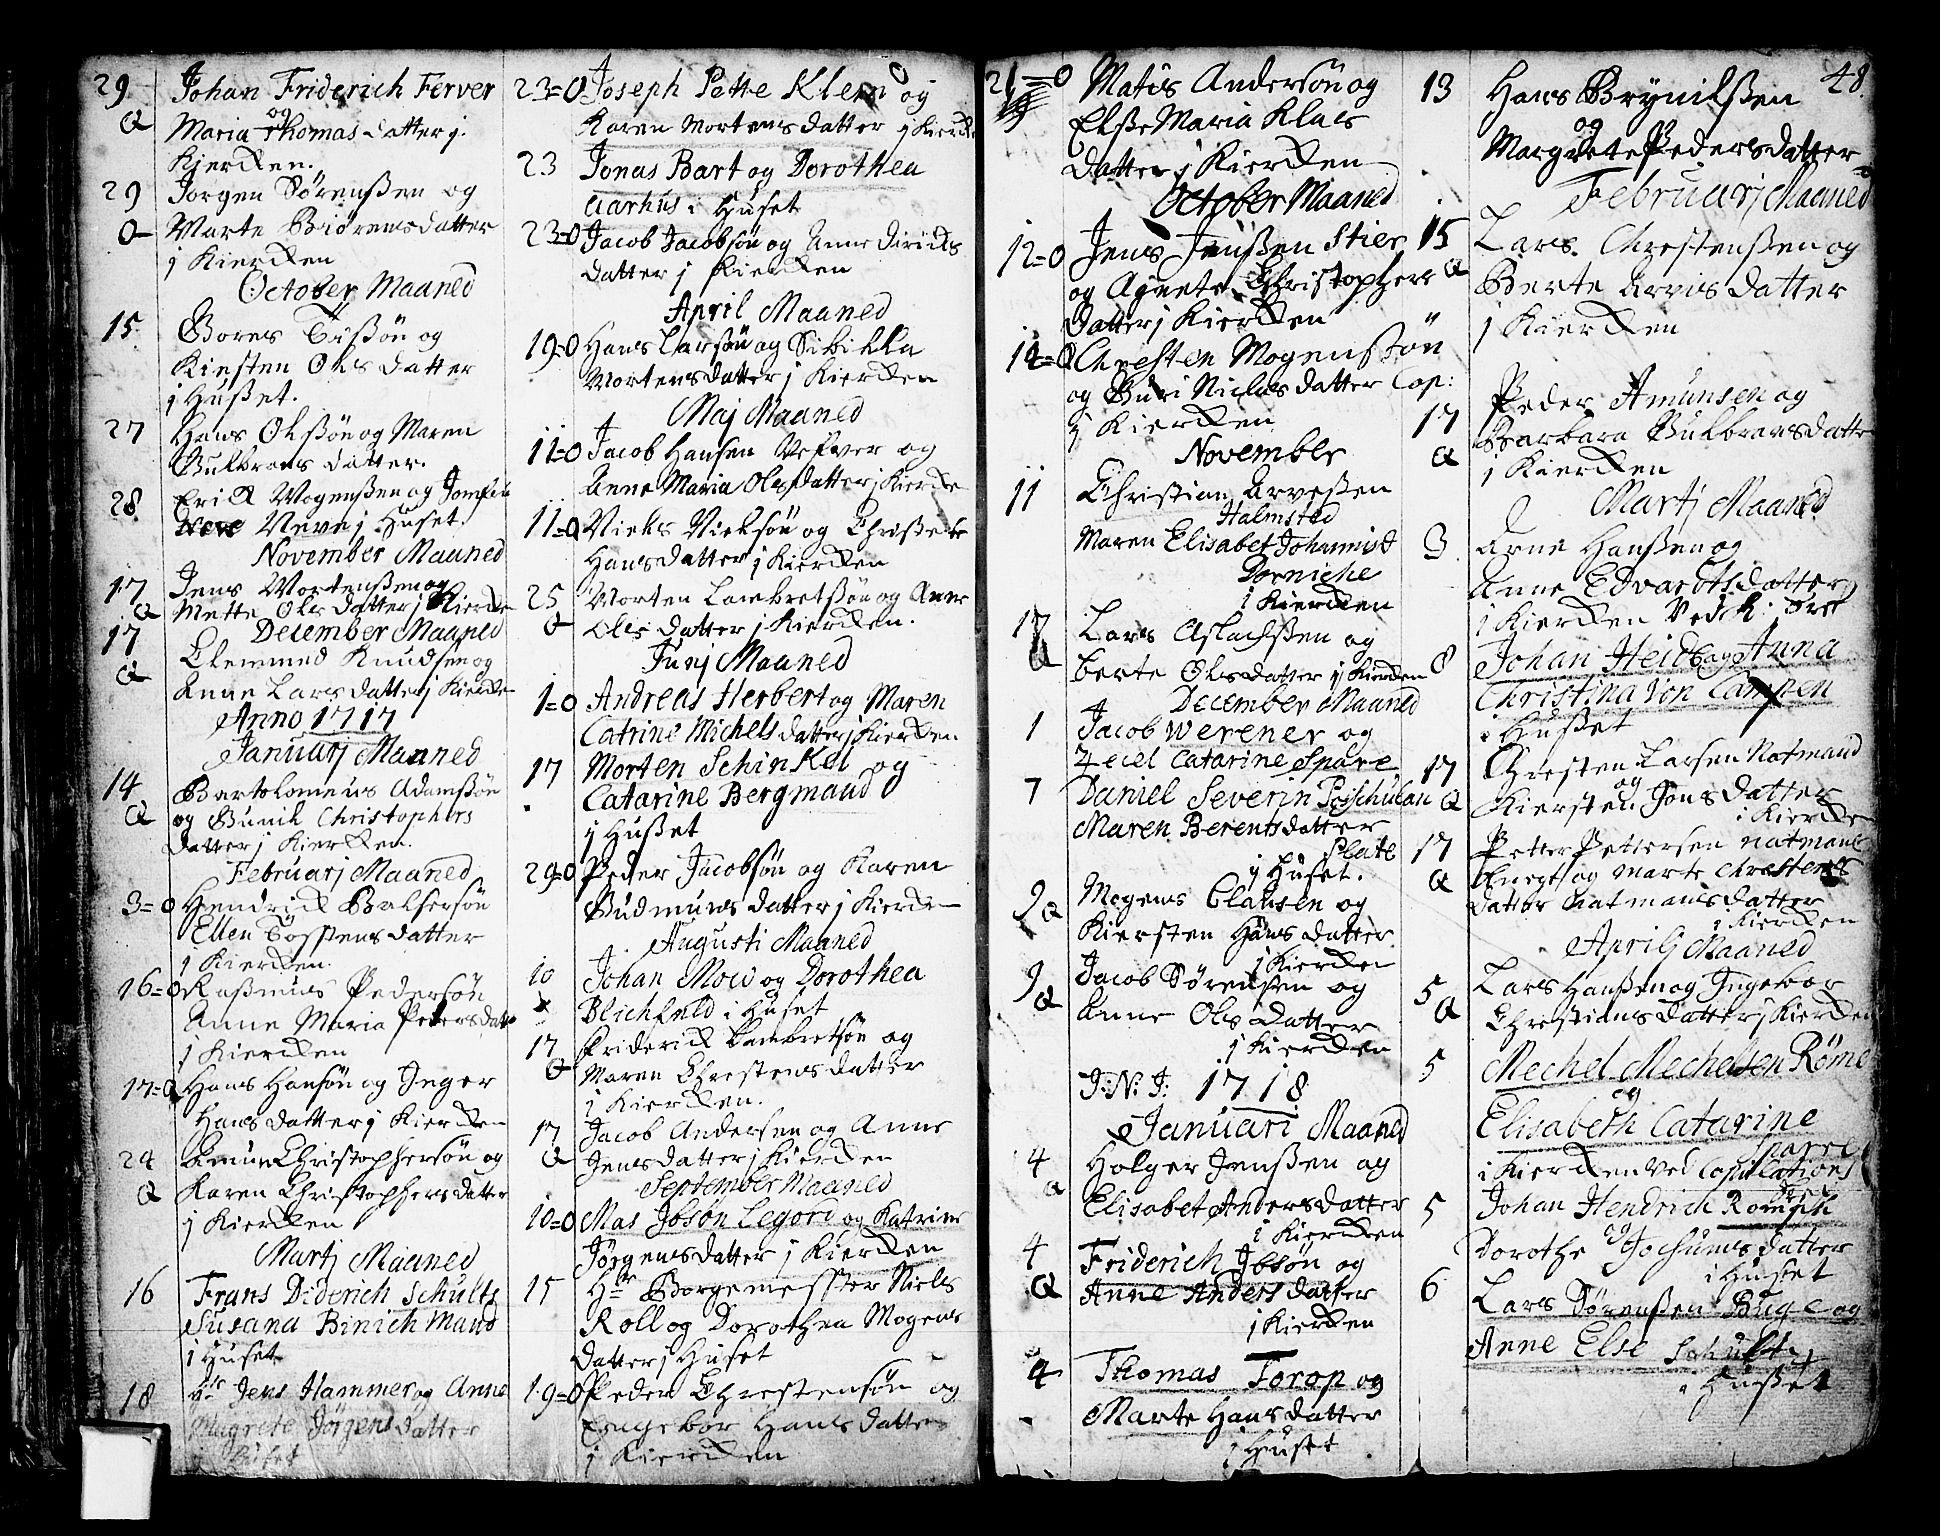 29 Johan Friderich Ferver
og
Maria Thomas datter j
Kiercken.
29 Jorgen Sørenßen og
Marte Biörensdatter
j Kiercken
October Maaned
15. Tißön og
Kiesten Ols datter
j Hußet.
27 Hans Olsßön og Maren
Gulbrans datter.
28 Erick Mogenßen og
j Hüset.
November Maaned
17 Jens Mortenßen og
Mette Ols datter j Kiercken
December Maaned
17 Clemmed Knudsen og
Anne Lars datter j Kiercken
Anno 1717
Januarj Maaned
14 Bartolomeus Adamßön
og Gunil Christophers
datter j Kiercken.
Februarj Maaned
3=0 Hendrick Balsersön
Ellen Tostens datter
j Kiercken
16=0 Raßmus Pedersön
Anne Maria Peders datter
j Kiercken
17=0 Hans Hansön og Inger
Hans datter j Kiercken
24 Christophersön og
Karen Christophers datter
j Kiercken
Martj Maaned
16 Frans Diderich Schults
Susana Binich Mand
j Huset
18 Hr Jens Hammer og Anne
Magrete Jörgens datter
j Huset
23=0 Joseph Pette Klein og
Karen Mortens datter j Kiercken
23 Jonas Bart og Dorothea
Aarhus i Huset
23=0 Jacob Jacobsön og Anne Diricks
datter j Kiercken
April Maaned
19=0 Hans Larsön og Sibilla
Mortens datter j Kiercken
Maj Maaned
11=0 Jacob Hansen Vefver og
Anne Maria Olsdatter j Kiercken
11=0 Niels Nielsön og Chrißete
Hansdatter j Kiercken
25 Morten Lambretsßön og Anne
Ols datter j Kiercken.
Junj Maaned
1=0 Andreas Herbert og Maren
Catrine Michels datter j Kiercken
17 Morten Schinkel og
Catarine Bergmand
j Hußet
29=0 Peder Jacobsön og Karen
Gudmuns datter j Kiercken
Augusti Maaned
10 Johan Mow og Dorothea
Blichfeld i Huset
17 Friderick Lambretsön og
Maren Chrestens datter
j Kiercken.
17 Jacob Andersen og Anne
Jensdatter j Kiercken
September Maaned
10=0 Mas Ibsön Legori og Katrine
Jörgens datter j Kiercken
15 Hr Borgemester Niels
Roll og Dorothea Mogens
datter j Huset
19=0 Peder Chrestensön og
Engebor Hans datter
j Kiercken
21=0 Matis Andersön og
Elsße Maria Klaes
datter j Kiercken
October Maaned
12=0 Jens Jenßen Stier
og Agnete Christophers
datter j Kiercken
12=0 Chresten Mogensßön
og Guri Niclas datter Cop:
j Kiercken
November
11 Christian Arveßen
Halmsted
Maren Elisabet Johannis d
Dorniche
i Kiercken
17 Lars Aslachsßen og
berte Olsdatter j Kiercken
December Maaned
1 Jacob Werener og
Zeciel Catarine Spare
7 Daniel Severin
Maren Berents datter
Plate
j Hüset.
9 Mogens Clausen og
Kiersten Hans datter
j Kiercken
9 Jacob Sörenßen og
Anne Ols datter
j Kiercken
J: N: J: 1718
Januari Maaned
4 Holger Jenßen og
Elisabet Andersdatter
i Kiercken
4 Friderich Ibsön og
Anne Anders datter
j Kiercken
4 Thomas Torop og
Marte Hans datter
j Huset
48.
13 Hans Brynilßen
og
Margrete Pedersdatter
Februarj Maaned
15 Lars Chrestenßen og
Berte Arvis datter
j Kiercken
17 Peder Amunsen og
Barbara Gulbransdatter
j Kiercken
Martj Maaned
3 Arne Hanßen og
Anne Edvardtsdatter
i Kiercken Ved
8 Johan Heid og Anna
Christina Von Campen
i Hußet
17 Chresten Larsen Natmand
og
Kiersten Jons datter
i Kiercken
17 Petter Pettersen natmans
og Marte Chrestens
datter natmans datter
i Kiercken
Aprilj Maaned
5 Lars Hanßen og Ingebor
Christians datter j Kiercken
5 Mechel Mechelsen Röme
og
Elisabeth Catarine
Spare
i Kiercken ved Copulations
5 Johan Hendrich
og
Dorothe Jochums datter
i Huset
6 Lars Sörenßen Buge og
Anne Else Schult
i Hußet